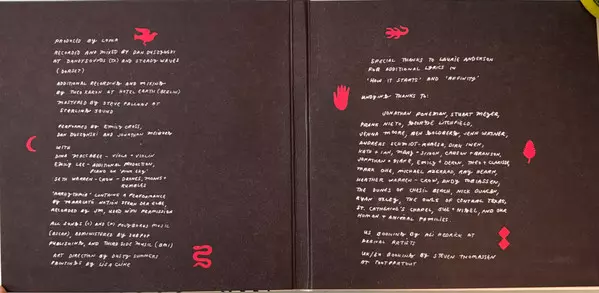 PRODUCED BY: LOMA
RECORDED AND MIXED BY DAN DUSZYNSKI
AT DANDYSOUNDS (TX) AND STEADY WAVES
(DORSET)
ADDITIONAL RECORDING AND MIXING
BY THEO KARON AT HOTEL EARTH (BERLIN)
MASTERED BY STEVE FALLONE AT
STERLING SOUND
PERFORMED BY EMILY CROSS,
DAN DUSZYNSKI AND JONATHAN MEIBURG
WITH
DINA MACCABEE - VIOLA + VIOLIN
EMILY LEE - ADDITIONAL PRODUCTION,
PIANO ON "PINK SKY"
SETH WARREN-CROW - DRONES, MOANS +
RUMBLES
CONTAINS A PERFORMANCE
BY
RECORDED BY JM, USED WITH PERMISSION
ALL SONGS (C) AND (P) POLYBORUS MUSIC
(ASCAP) ADMINISTERED BY SUBPOP
PUBLISHING, AND THIRD SIDE MUSIC (BMI)
ART DIRECTION BY DUSTY SUMMERS
PAINTINGS BY LISA CLINE
SPECIAL THANKS TO LAURIE ANDERSON
FOR ADDITIONAL LYRICS IN
'HOW IT STARTS' AND 'AFFINITY'
UNDYING THANKS TO:
JONATHAN PONEMAN, STUART MEYER,
FRANK NIETO, GEORGIE LITCHFIELD,
JENNA MOORE, BEN GOLDBERG, JENN WASNER,
ANDREAS SCHMIDT-MARTELLE, DIRK IWEN,
KETH + IAN, MARY + SIMON, CARSON + BRANSON,
JONATHAN + EMILY + DERON, THEO + CLAUSSER,
MICHAEL HOBGARD, RAY BEARN,
HEATHER WARREN-CROW, ANDY
THE DUNES OF CHESIL BEACH, NICK
RYAN THE OWLS OF CENTRAL TEXAS,
ST. CATHERINE'S CHAPEL, SUE + NIGEL, AND OUR
HUMAN + ANIMAL FAMILIES.
US BOOKING BY ALI HEDRICK AT
ARRIVAL ARTISTS
UK/EU BOOKING BY STEVEN THOMASSEN
AT TOUTPARTOUT